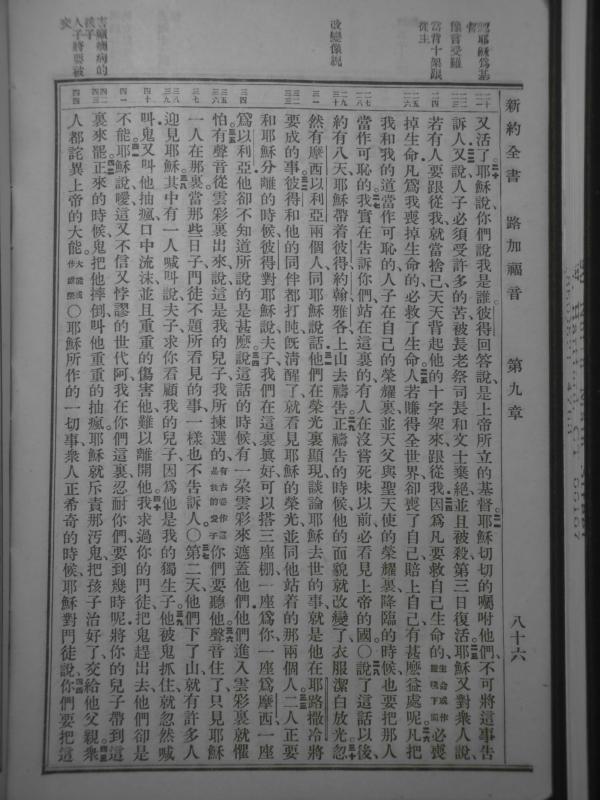 新約全書 路加福音 第九章 八十六
認耶穌爲基督
豫言受難
當背十架跟從主
改變像貌
害癲癇病的孩子
人子將要被交
又活了耶穌說你們說我是誰彼得回答說是上帝所立的基督耶穌切切的囑咐他們不可將這事告
訴人又說人子必須受許多的苦被長老祭司長和文士棄絕並且被殺第三日復活耶穌又對衆人說
若有人要跟從我就當捨己天天背起他的十字架來跟從我因爲凡要救自己生命的生命或作靈魂下同必喪
掉生命凡爲我喪掉生命的必救了生命人若賺得全世界卻喪了自己賠上自己有甚麽益處呢凡把
我和我的道當作可恥的人子在自己的榮耀裏並天父與聖天使的榮耀裏降臨的時候也要把那人
當作可恥的我實在告訴你們站在這裏的有人在沒嘗死味以前必看見上帝的國〇說了這話以後
約有八天耶穌帶着彼得約翰雅各上山去禱告正禱告的時候他的面貌就改變了衣服潔白放光忽
然有摩西以利亞兩個人同耶穌說話他們在榮光裏顯現談論耶穌去世的事就是他在耶路撒冷將
要成的事彼得和他的同伴都打盹旣清醒了就看見耶穌的榮光並同他站着的那兩個人二人正要
和耶穌分離的時候彼得對耶穌說夫子我們在這裏眞好可以搭三座棚一座爲你一座爲摩西一座
爲以利亞他卻不知道所說的是甚麽說這話的時候有一朶雲彩來遮蓋他們他們進入雲彩裏就懼
怕有聲音從雲彩裏出來說這是我的兒子我所揀選的有古卷作這是我的愛子你們要聽他聲音住了只見耶穌
一人在那裏當那些日子門徒不題所看見的事一樣也不告訴人〇第二天他們下了山就有許多人
迎見耶穌其中有一人喊叫說夫子求你看顧我的兒子因爲他是我的獨生子他被鬼抓住就忽然喊
叫鬼又叫他抽瘋口中流沫並且重重的傷害他難以離開他我求過你的門徒把鬼趕出去他們卻是
不能耶穌說噯這又不信又悖謬的世代阿我在你們這裏忍耐你們要到幾時呢將你的兒子帶到這
裏來罷正來的時候鬼把他摔倒叫他重重的抽瘋耶穌就斥責那汚鬼把孩子治好了交給他父親衆
人都詫異上帝的大能大能或作威榮〇耶穌所作的一切事衆人正希奇的時候耶穌對門徒說你們要把這